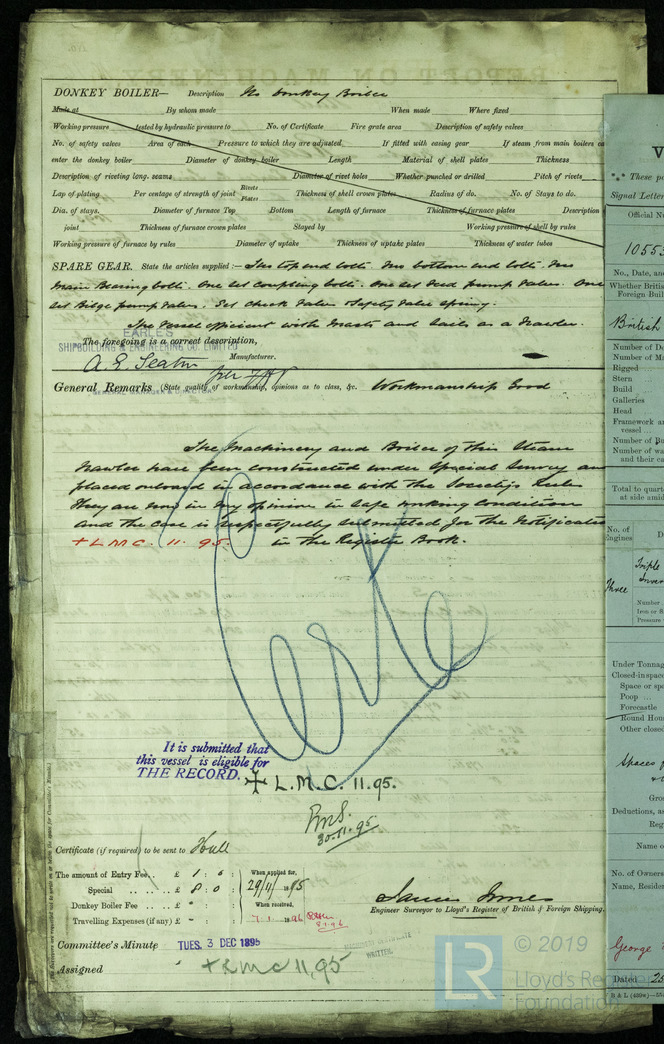 DONKEY BOILER— Description No Donkey Boiler
Made at By whom made When made Where fixed
Working pressure tested by hydraulic pressure to No. of Certificate Fire grate area Description of safety valves
No. of safety valves Area of each Pressure to which they are adjusted If fitted with easing gear If steam from main boilers ca
enter the donkey boiler Diameter of donkey boiler Length Material of shell plates Thickness
Description of riveting long. seams Diameter of rivet holes Whether punched or drilled Pitch of rivets
Lap of plating Per centage of strength of joint Rivets Plates Thickness of shell crown plates Radius of do. No. of Stays to do.
Dia. of stays. Diameter of furnace Top Bottom Length of furnace Thickness of furnace plates Description
joint Thickness of furnace crown plates Stayed by Working pressure of shell by rules
Working pressure of furnace by rules Diameter of uptake Thickness of uptake plates Thickness of water tubes
SPARE GEAR. State the articles supplied:— Two top end bolts. Two bottom end bolts. Two
Main Bearing bolts. One set Coupling bolts. One set Feed pump Valves. One
set Bilge pump Valves. Set Check Valves. Safety Valve Spring.
The Vessel efficient with Masts and Sails as a Trawler.
The foregoing is a correct description,
EARLE'S
SHIPBUILDING & ENGINEERING CO. LIMITED
A. E. Seaton Manufacturer.
GENERAL MANAGER & DIRECTOR
General Remarks (State quality of workmanship, opinions as to class, &c. Workmanship Good
The Machinery and Boiler of this Steam
Trawler have been constructed under Special Survey and
placed onboard in accordance with the Society's Rules
They are now in my opinion in safe working Condition
and the Case is respectfully submitted for the Notification
+ L M C. 11. 95. in the Register Book.
It is submitted that
this vessel is eligible for
THE RECORD. + L.M.C. 11.95.
30.11.95
Certificate (if required) to be sent to Hull
The amount of Entry Fee.. £ 1 : 0 : When applied for,
Special .. .. .. £ 8 : 0 : 29/11/1895
Donkey Boiler Fee .. .. £ When received,
Travelling Expenses (if any) £
James Jones
Engineer Surveyor to Lloyd's Register of British & Foreign Shipping.
Committee's Minute TUES. 3 DEC 1895
WRITTEN.
Assigned + L M C 11,95
V
*** These po
Signal Letter
Official Nu
1055
No., Date, and
Whether British
Foreign Buil
British
Number of De
Number of Ma
Rigged
Stern
Build
Galleries
Head
Framework an
vessel
Number of Bu
Number of wa
and their ca
Total to quart
at side amid
No. of
Engines
D
Triple
Inver
Three
Number
Iron or S
Pressure
Under Tonnag
Closed-in space
Space or spa
Poop
Forecastle
Round Hou
Other closed
Spaces f
Gro
Deductions, as
Reg
Name o
No. of Owners
Name, Residen
George
Dated 25
© 2019
LR
Lloyd's Register
Foundation